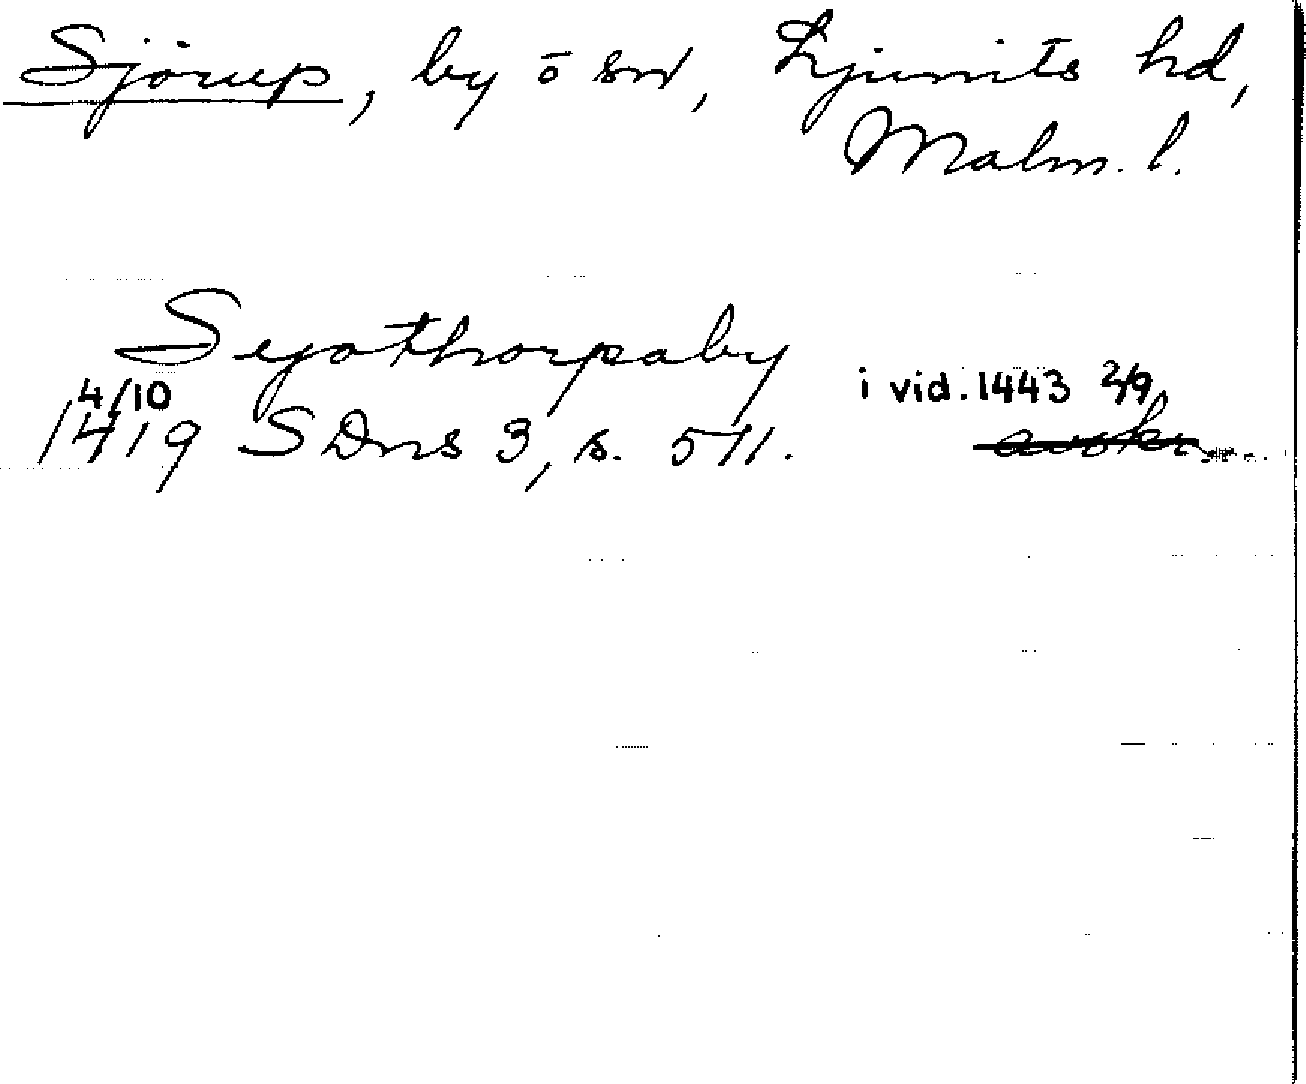 Sjörup, by o sn, Ljunits hd,
Malm. l.
Seyothorpaby
4/10
1419 SDns 3, s. 511. i vid. 1443 2/9